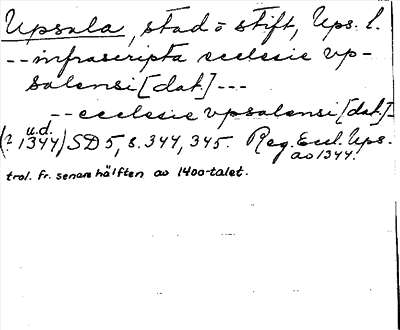 Upsala, stad o stift, Ups. l.
-- infrascripta ecclesie vp-
salensi [dat.] ---
-- ecclesie vpsalensi [dat.] -
u.d.
(? 1344) SD 5, s. 344, 345. Reg. Eccl. Ups.
av 1344.
trol. fr. senare hälften av 1400-talet.